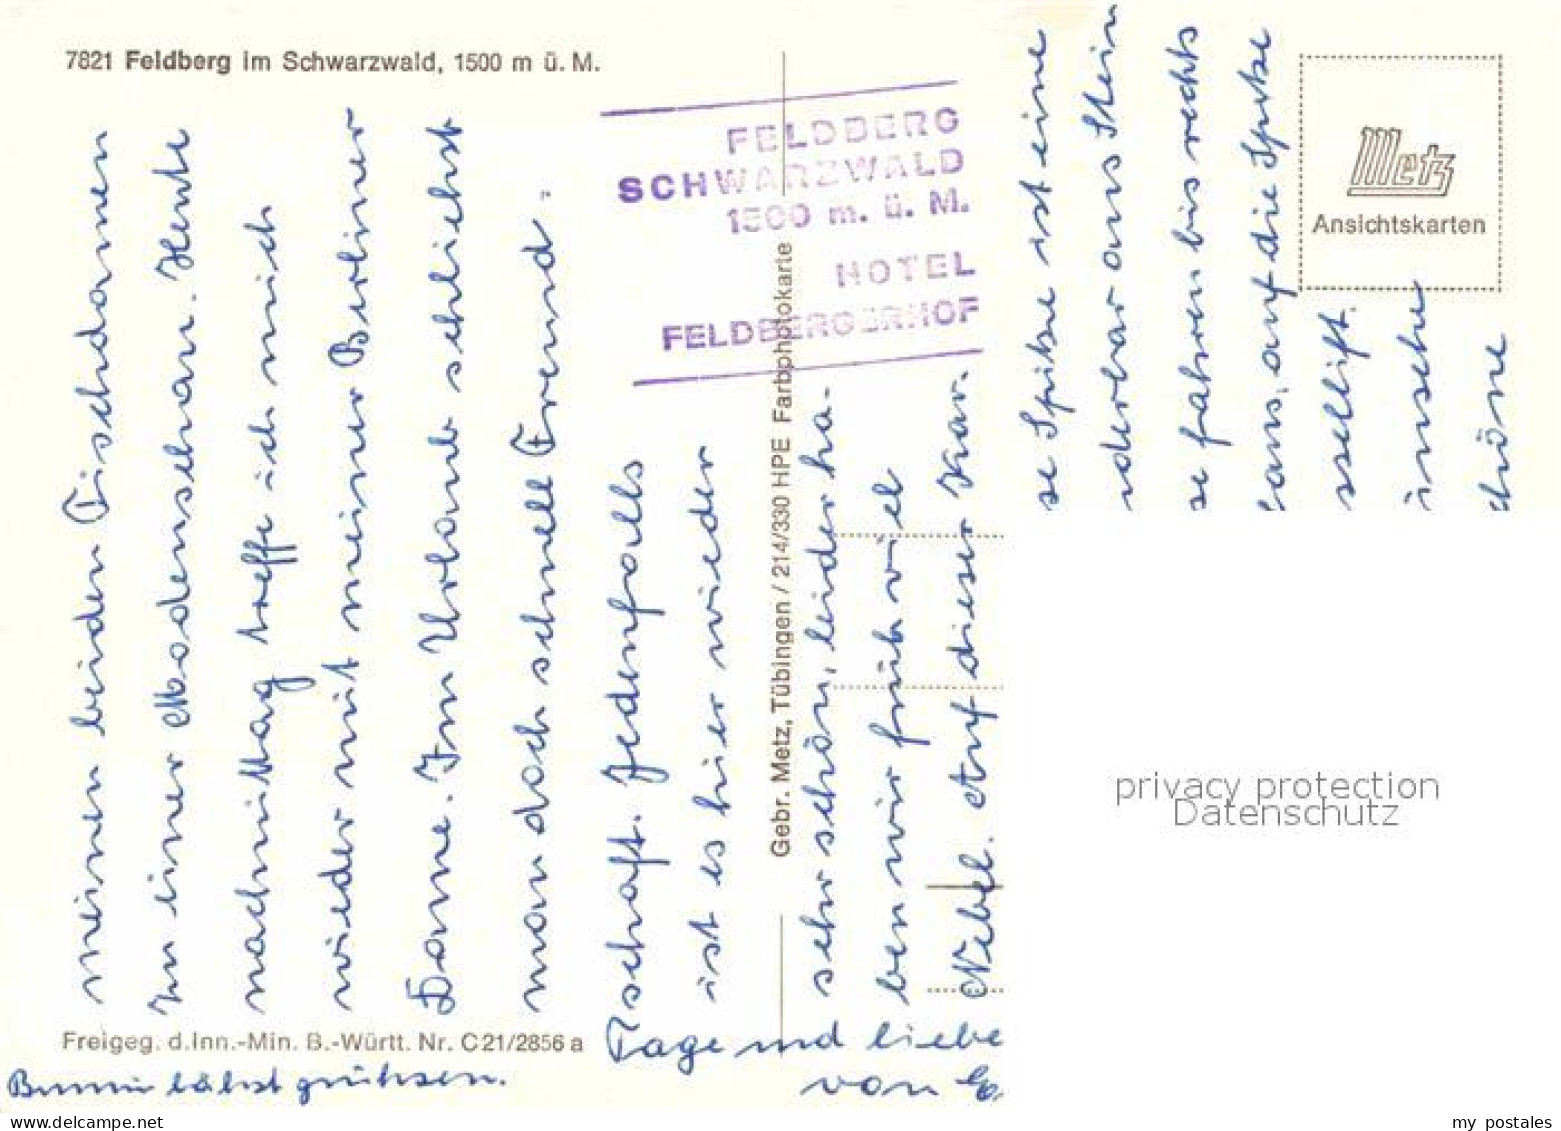 7821 Feldberg im Schwarzwald, 1500 m ü. M.
FELDBERG
SCHWARZWALD
1500 m. ü. M.
HOTEL
FELDBERGERHOF
Metz
Ansichtskarten
meinen beiden Tischdamen
zu einer Modenschau. Heute
nachmittag treffe ich mich
wieder mit meiner Berliner
Dame. Im Urlaub schließt
man doch schnell Freund-
schaft. Jedenfalls
ist es hier wieder
sehr schön, leider ha-
ben wir früh viel
Nebel. Auf dieser Kar-
se Spitze ist eine
aus Stein
se fahren bis rechts
auf die Spitze
ssellift.
schöne
Tage und liebe
von
lässt grüssen.
Gebr. Metz, Tübingen / 214/330 HPE Farbphotokarte
Freigeg. d. Inn.-Min. B.-Württ. Nr. C 21/2856 a
privacy protection
Datenschutz
my postales